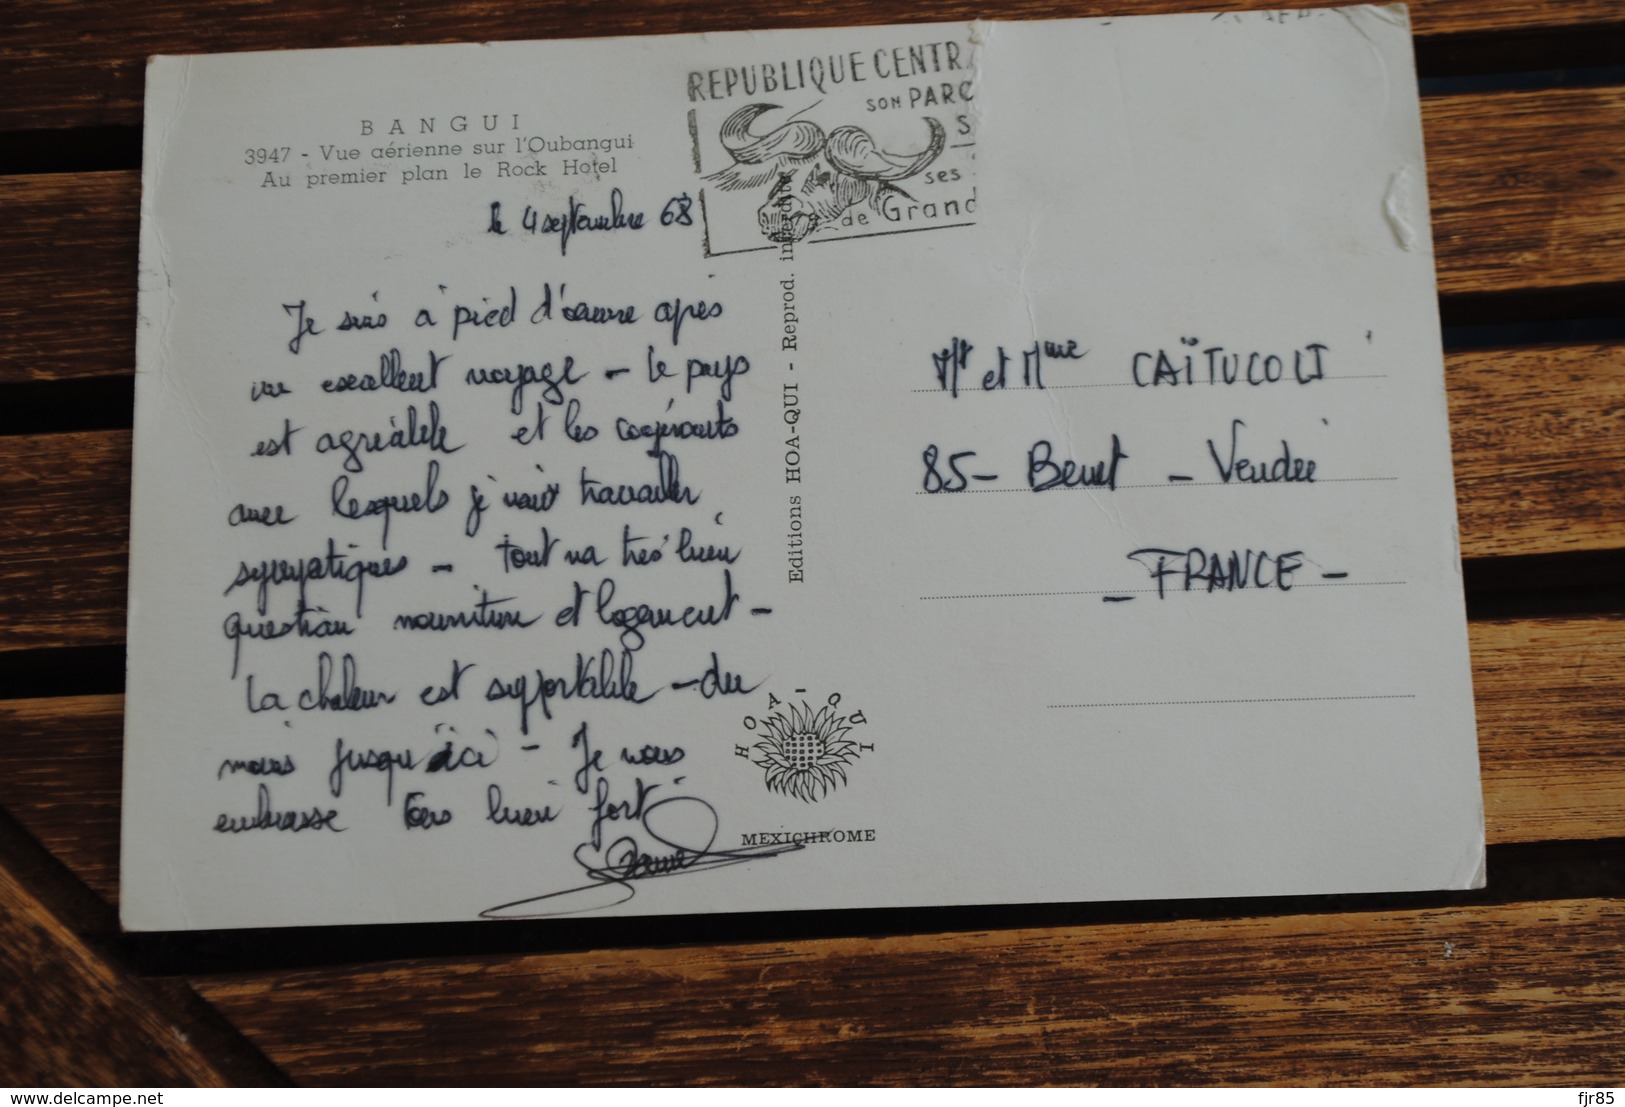 BANGUI
3947 - Vue aérienne sur l'Oubangui
Au premier plan le Rock Hotel
le 4 septembre 68
Je suis à pied d'œuvre après
un excellent voyage - Le pays
est agréable et les coopérants
avec lesquels je vais travailler
sympatiques - Tout va très bien
question nourriture et logement -
La chaleur est supportable - du
moins jusqu'ici - Je vous
embrasse tous bien fort
REPUBLIQUE CENTR
SON PARC
S
ses
de Grand
Editions HOA-QUI - Reprod. interdite
HOA-QUI
MEXICHROME
Mr et Mme CAÏTUCOLI
85 - Benet - Vendée
- FRANCE -
delcampe.net
fjr85